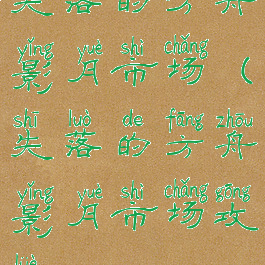 失落的方舟
yǐng yuè shì chǎng
影月市场（
shī luò de fāng zhōu
失落的方舟
yǐng yuè shì chǎng gōng
影月市场攻
lüè